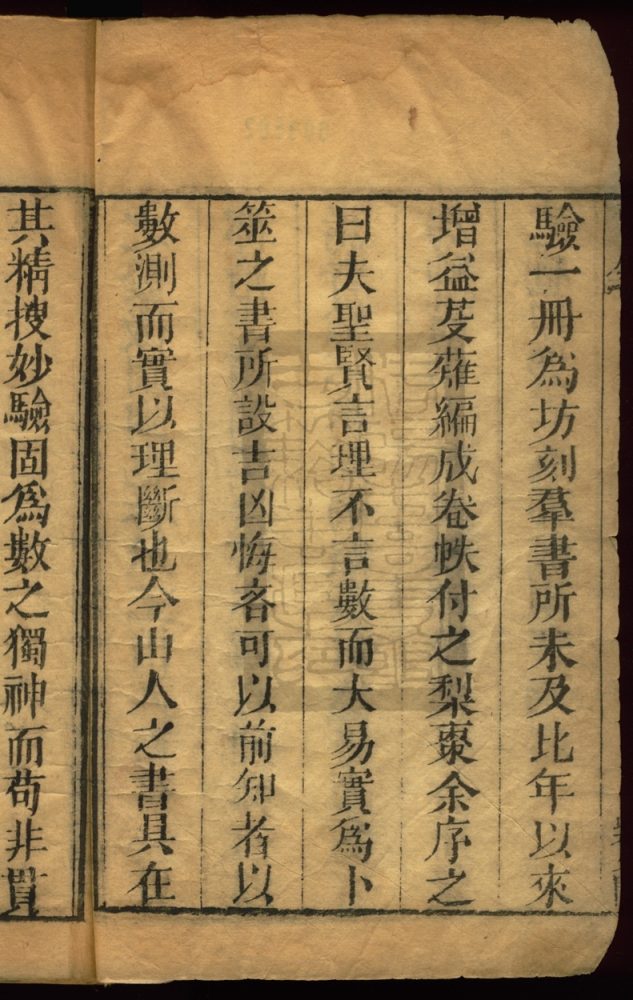 驗一冊爲坊刻羣書所未及比年以來
增益芟薙編成卷帙付之梨棗余序之
曰夫聖賢言理不言數而大易實爲卜
筮之書所設吉凶悔吝可以前知者以
數測而實以理斷也今山人之書具在
其精搜妙驗固爲數之獨神而苟非貫